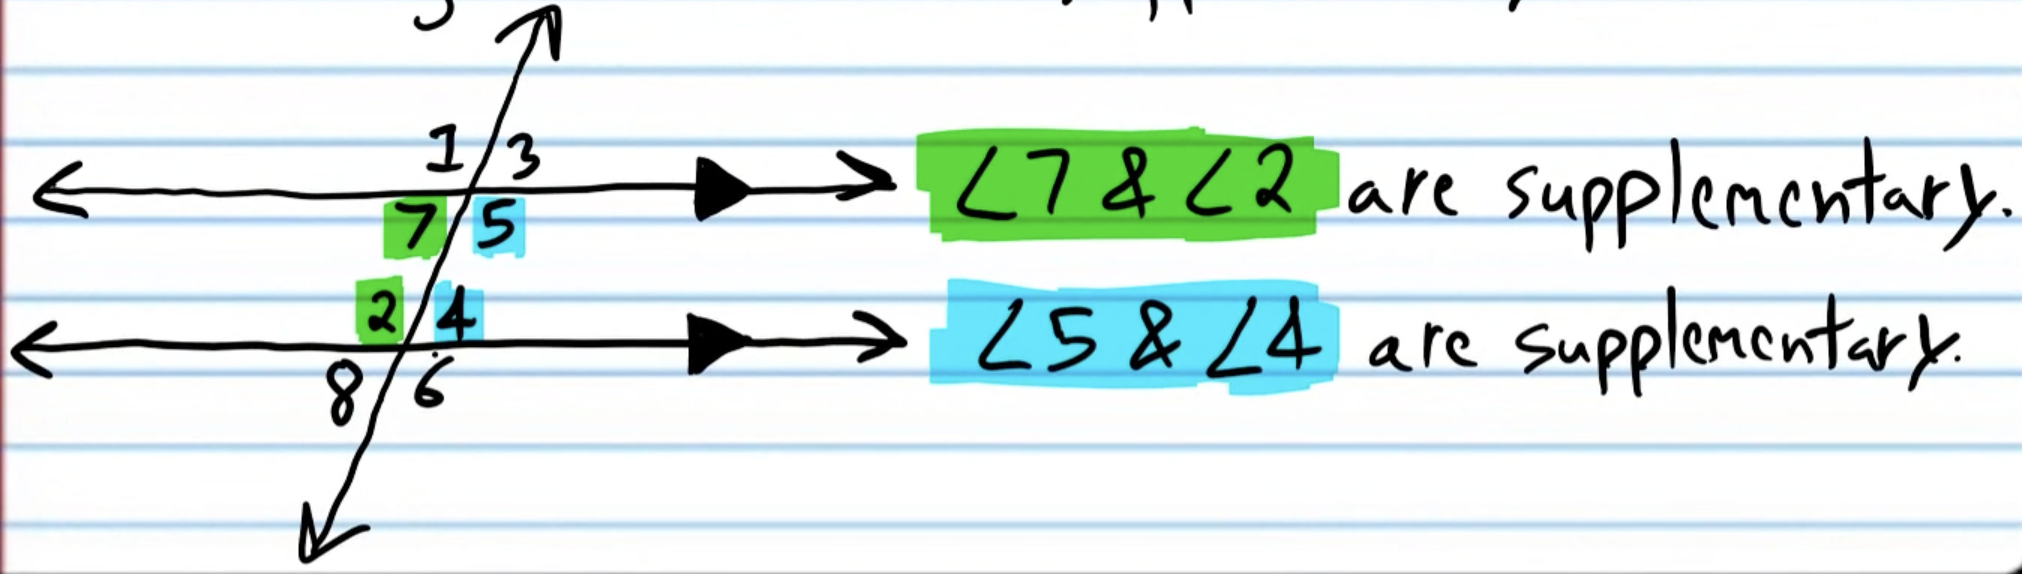 1 3
7 5
∠7 & ∠2 are supplementary.
2 4
∠5 & ∠4 are supplementary.
8 6